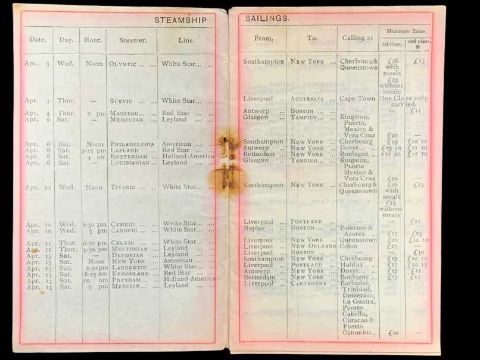 STEAMSHIP SAILINGS.
Date. Day. Hour. Steamer. Line. From. To. Calling at Minimum Rates
1st class. 2nd class.
Apr. 3 Wed. Noon OLYMPIC White Star Southampton NEW YORK Cherbourg & £26 £13
Queenstown with
meals
£23
without
meals
Apr. 4 Thur. — SUEVIC White Star Liverpool AUSTRALIA Cape Town One Class only
carried.
Apr. 4 Thur. 2 pm MANITOU Red Star Antwerp BOSTON — £11
Apr. 6 Sat. MEMPHIAN Leyland Glasgow TAMPICO Kingston,
Puerto,
Mexico &
Vera Cruz £20 —
Apr. 6 Sat. Noon PHILADELPHIA American Southampton NEW YORK Cherbourg
Apr. 6 Sat. LAPLAND Red Star Antwerp NEW YORK Dover
Apr. 6 Sat. 4 am ROTTERDAM Holland-America Rotterdam NEW YORK Boulogne
Apr. 6 Sat. LOUISIANIAN Leyland Glasgow TAMPICO Kingston,
Puerto,
Mexico &
Vera Cruz £20 —
Apr. 10 Wed. Noon TITANIC White Star Southampton NEW YORK Cherbourg & £26 £13
Queenstown with
meals
£23
without
meals
Apr. 10 Wed. CYMRIC White Star Liverpool PORTLAND —
Apr. 10 Wed. CANOPIC White Star Naples BOSTON Palermo &
Azores
Apr. 11 Thur. CELTIC White Star Liverpool NEW YORK Queenstown
Apr. 11 Thur. Leyland Liverpool NEW ORLEANS
Apr. 13 Sat. — DEVONIAN Leyland Liverpool BOSTON — £10
Apr. 13 Sat. Noon NEW YORK American Southampton NEW YORK Cherbourg
Apr. 13 Sat. LAURENTIC White Star Liverpool PORTLAND Halifax
Apr. 13 Sat. KROONLAND Red Star Antwerp NEW YORK Dover
Apr. 13 Sat. POTSDAM Holland-America Rotterdam NEW YORK Boulogne
Apr. 13 Sat. MERCIAN Leyland Liverpool CARTAGENA Barbados,
Trinidad,
Demerara,
La Guaira,
Puerto
Cabello,
Curacao &
Puerto
Colombia £20 —